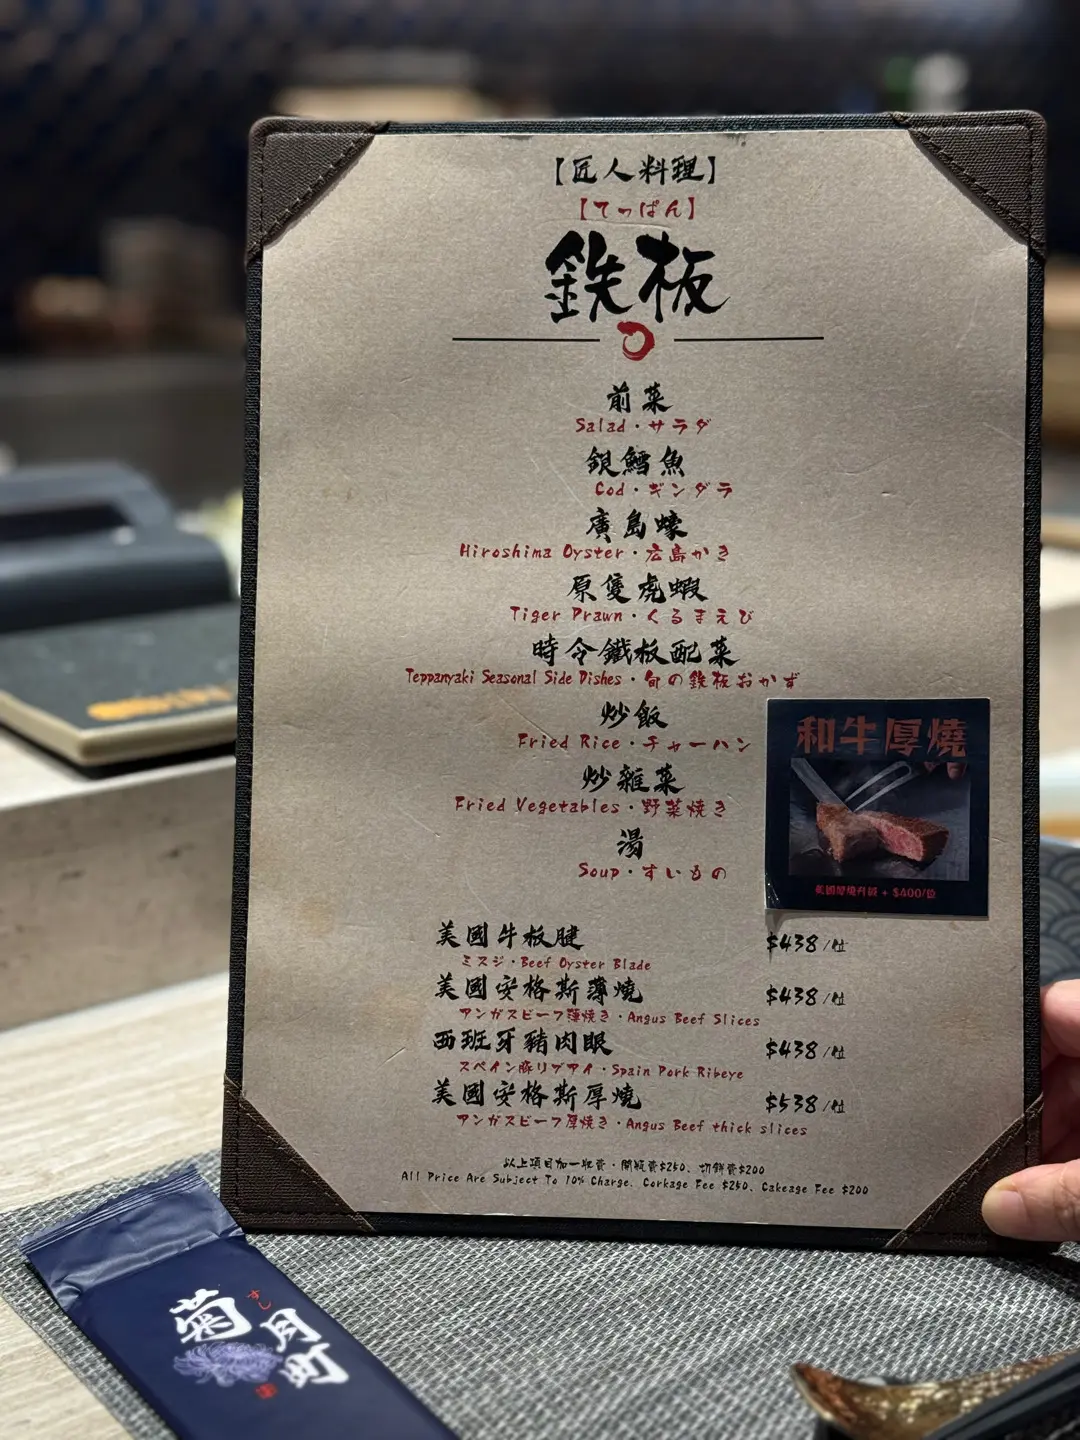 【匠人料理】
【てっぱん】
鉄板
前菜
Salad・サラダ
銀鱈魚
Cod・ギンダラ
廣島蠔
Hiroshima Oyster・広島かき
原隻虎蝦
Tiger Prawn・くるまえび
時令鐵板配菜
Teppanyaki Seasonal Side Dishes・旬の鉄板おかず
炒飯
Fried Rice・チャーハン
炒雜菜
Fried Vegetables・野菜焼き
湯
Soup・すいもの
和牛厚燒
美國厚燒升級 + $400/位
美國牛板腱 $438/位
ミスジ・Beef Oyster Blade
美國安格斯薄燒 $438/位
アンガスビーフ薄焼き・Angus Beef Slices
西班牙豬肉眼 $438/位
スペイン豚リブアイ・Spain Pork Ribeye
美國安格斯厚燒 $538/位
アンガスビーフ厚焼き・Angus Beef thick slices
以上項目加一收費・開瓶費$250、切餅費$200
All Price Are Subject To 10% Charge. Corkage Fee $250, Cakeage Fee $200
菊月町
すし